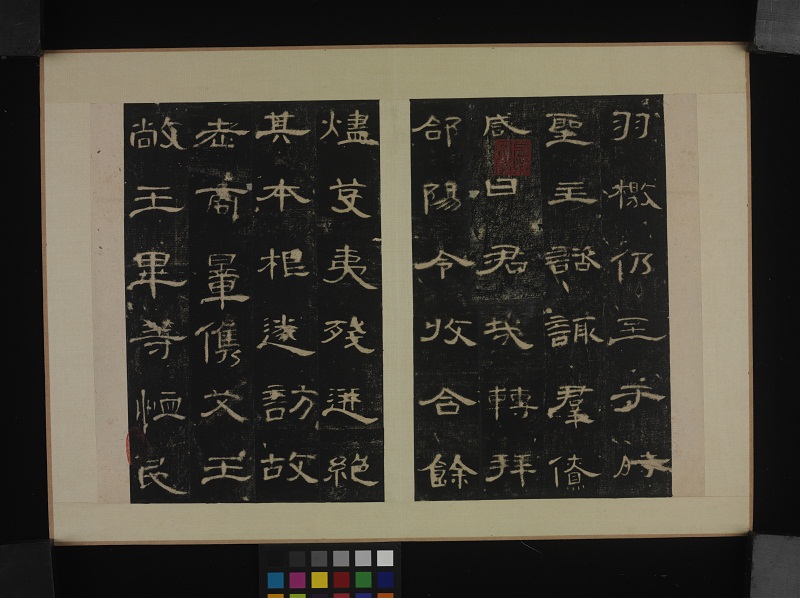 羽檄仍至于時
聖主諮諏羣僚
咸曰君哉轉拜
郃陽令收合餘
燼芟夷殘迸絕
其本根遂訪故
老商量儁艾王
敞王畢等恤民